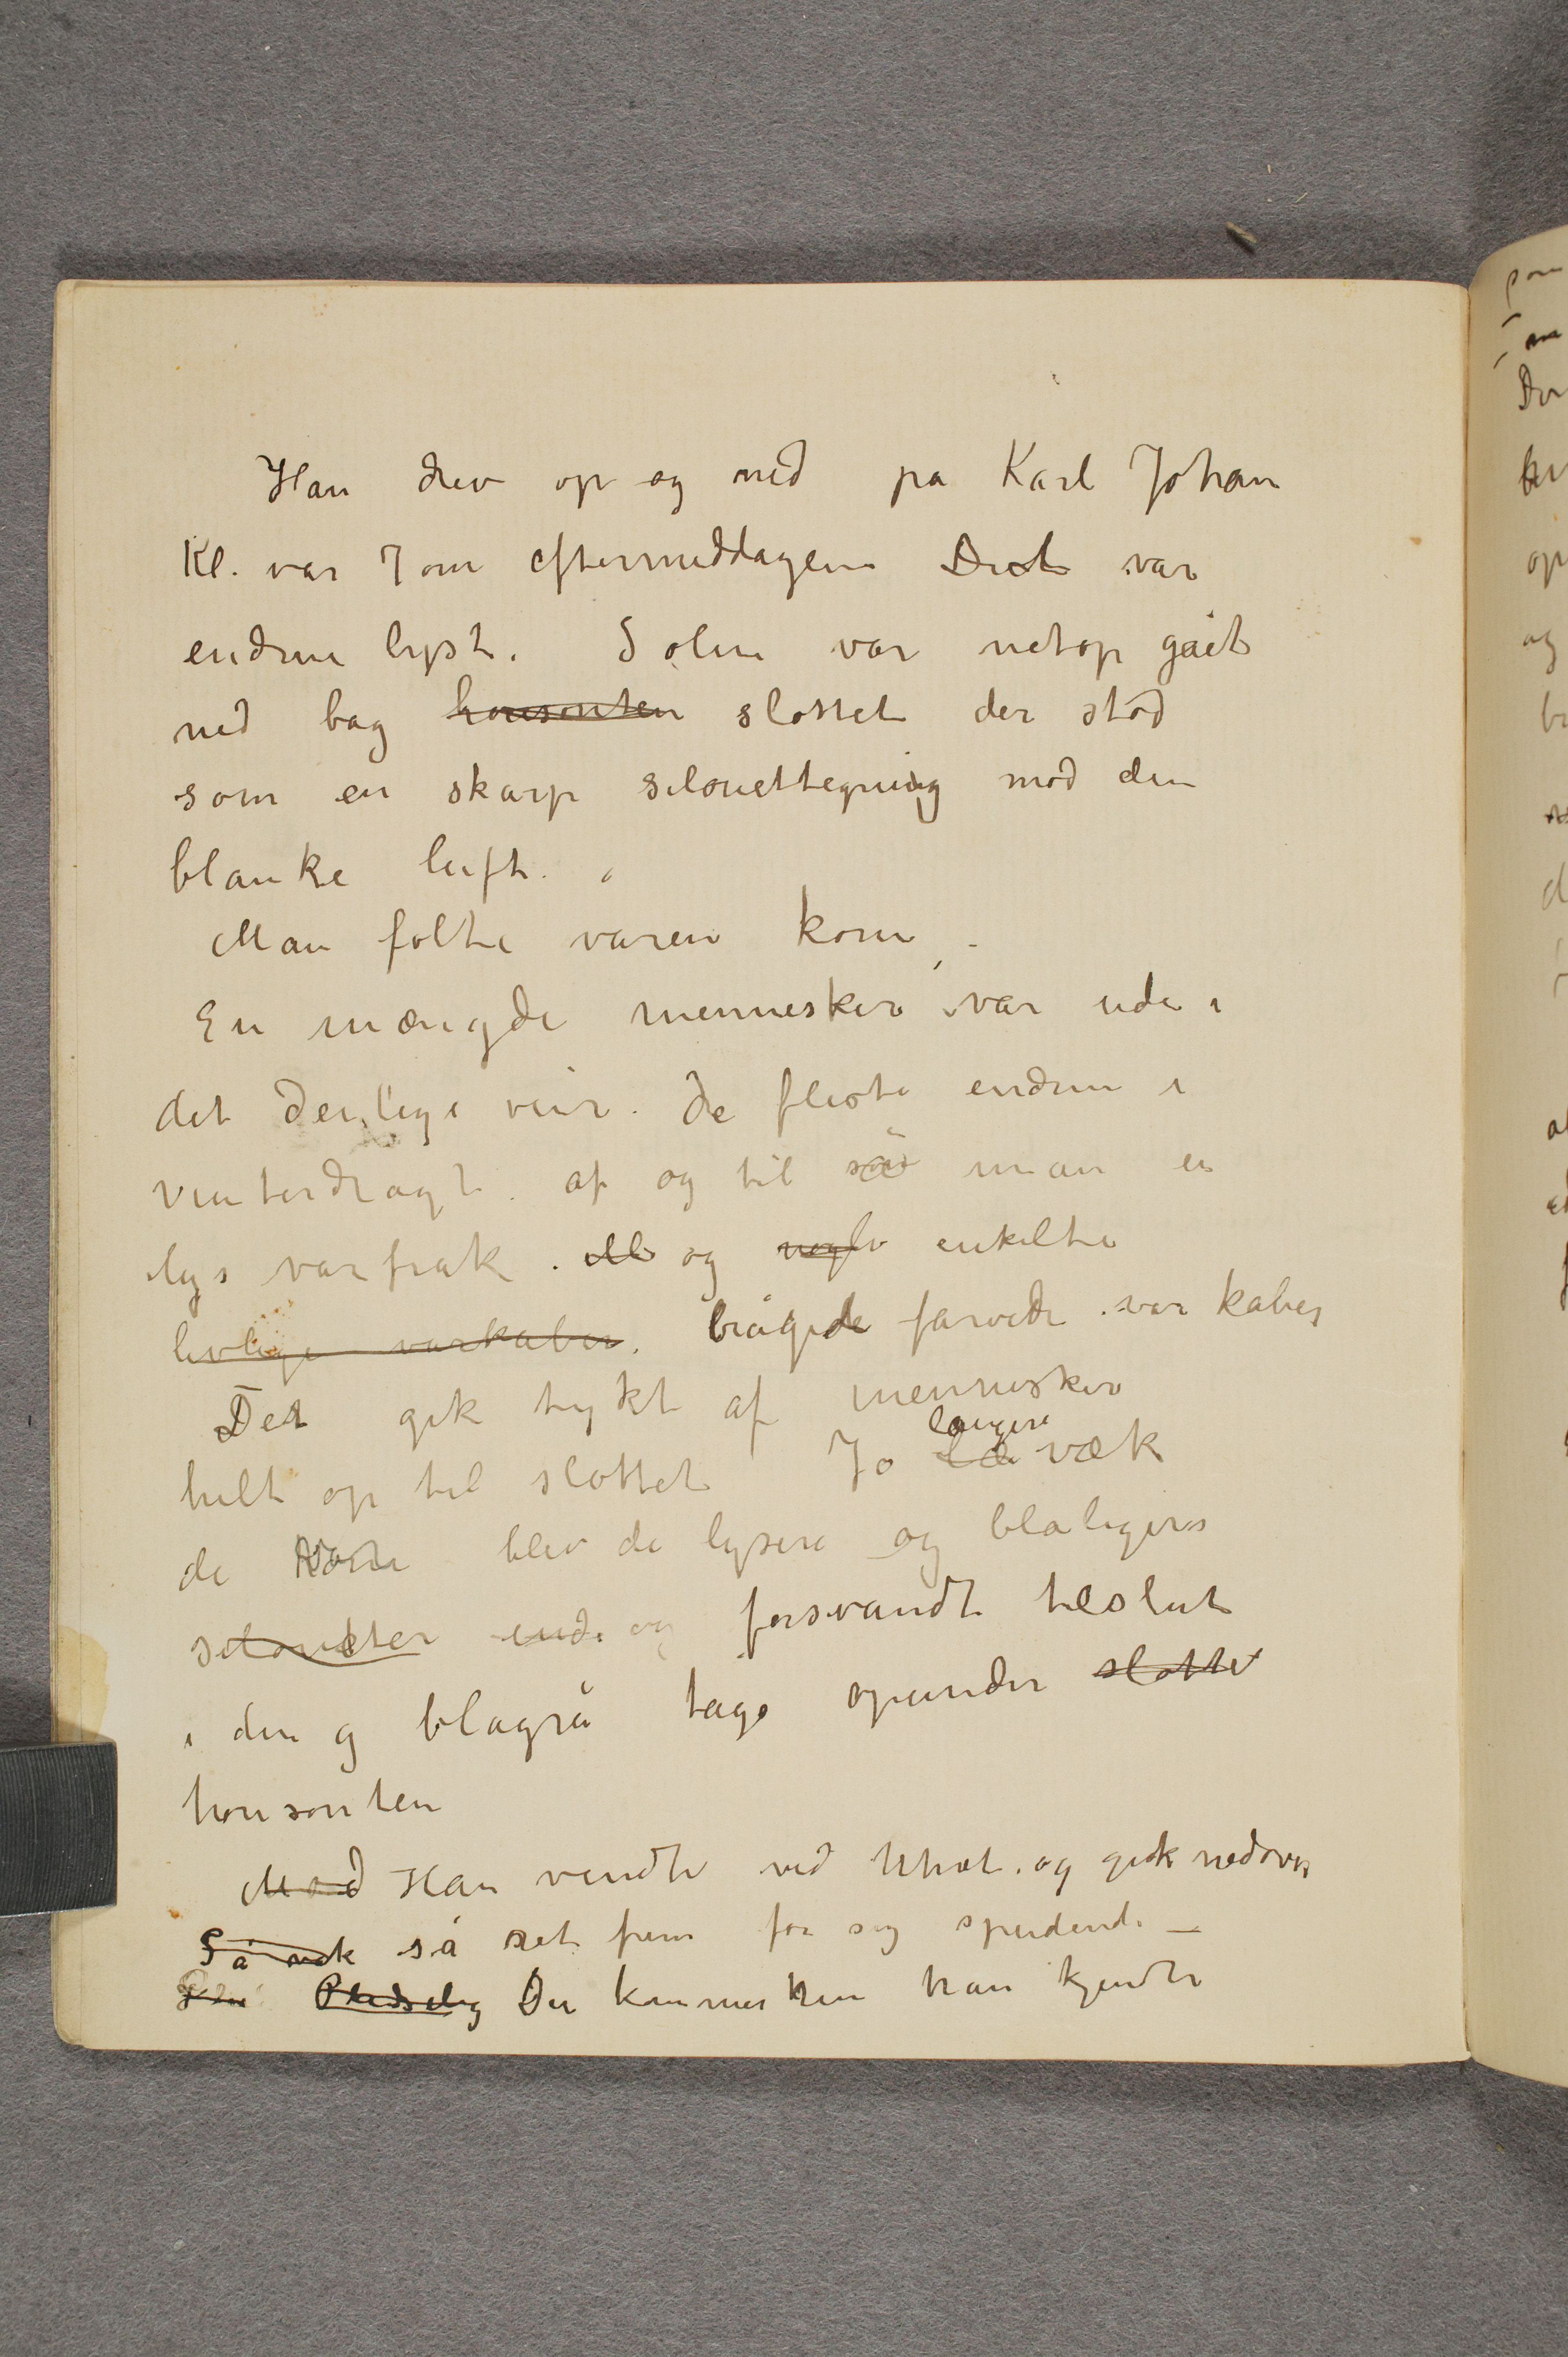 Han drev op og ned på Karl Johan
Kl. var 7 om eftermiddagen Det var
endnu lyst. Solen var netop gået
ned bag horisonten slottet der stod
som en skarp silouettegning mod den
blanke luft.
Man følte våren kom.
En mængde mennesker var ude i
det deilige veir. De fleste endnu i
vinterdragt. af og til så man en
lys vårfrak. og nogle enkelte
livlige vårkåber. brogede farvede vår kåber
Det gik tykt af mennesker
helt op til slottet Jo længere væk
de kom blev de lysere og blåligere
silouetter og forsvandt tilslut
i den g blågrå tåge opunder slotte
horisonten
Mod Han vendte ved Uhret og gik nedover
Så så ret frem for sig speidende –
Pludselig Der kommer han kjendte